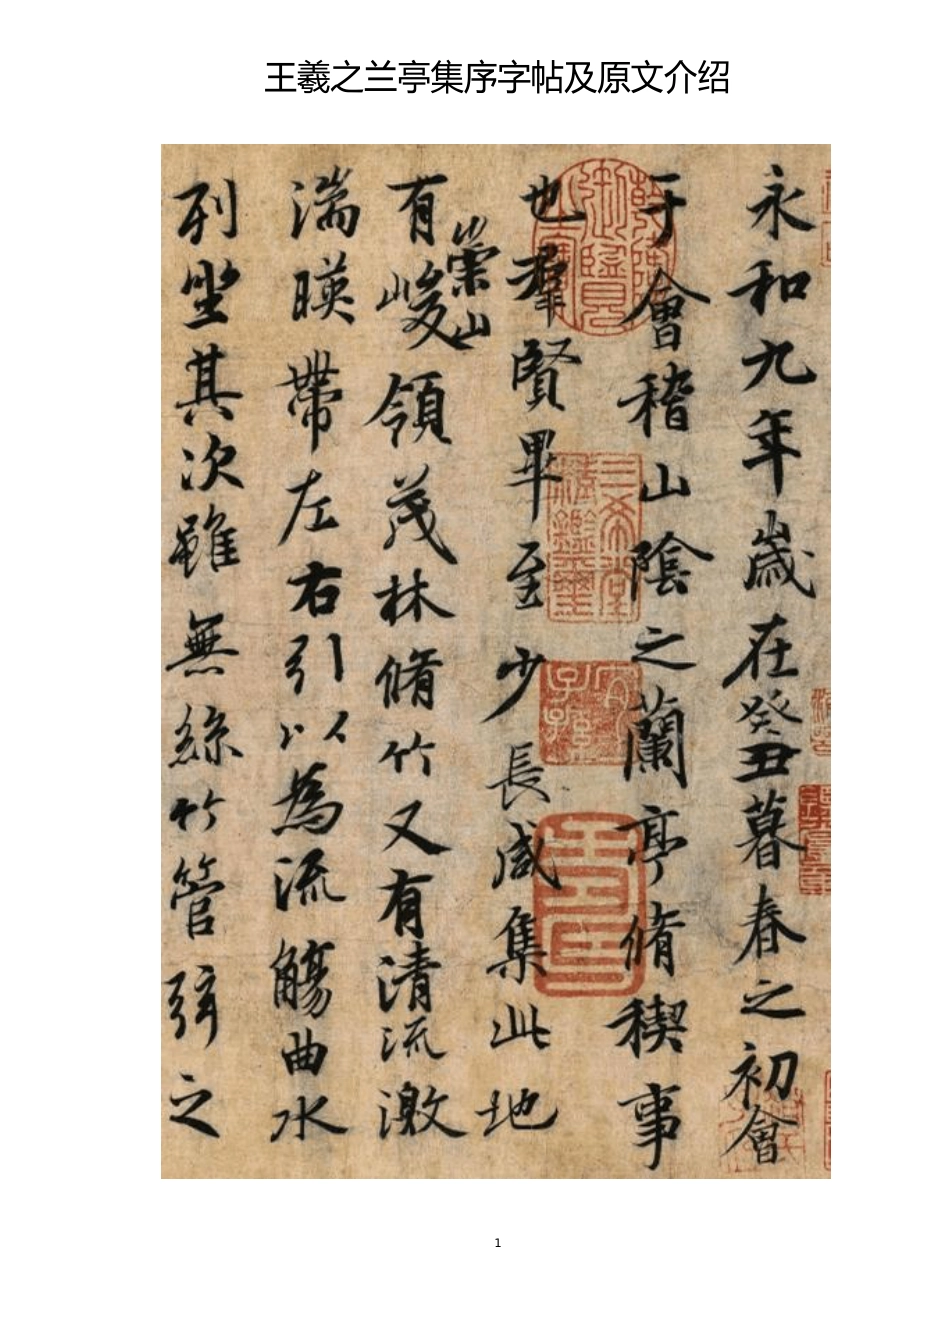 王羲之兰亭集序字帖及原文介绍
永和九年歲在癸丑暮春之初會
于會稽山陰之蘭亭脩禊事
也羣賢畢至少長咸集此地
有崇山峻領茂林脩竹又有清流激
湍暎帶左右引以為流觴曲水
列坐其次雖無絲竹管弦之
三希堂精鑑璽
1